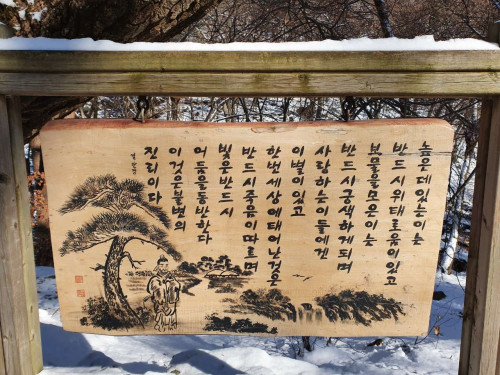 높은데있는이는
반드시위태로움이있고
보물을모은이는
반드시궁색하게되며
사랑하는이들에겐
이별이있고
한번세상에태어난것은
반드시죽음이따르며
빛은반드시
어둠을동반한다
이것은불변의
진리이다